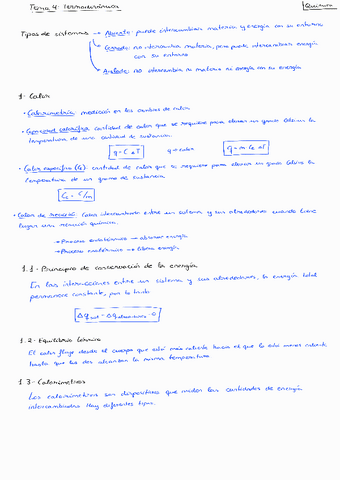 Tema 4: Termodinámica
Química
Tipos de sistemas → Abierto: puede intercambiar materia y energía con su entorno
Cerrado: no intercambia materia, pero puede intercambiar energía
con su entorno
Aislado: no intercambia ni materia ni energía con su entorno
1. Calor
• Calorimetría: medición en los cambios de calor
• Capacidad calorífica: cantidad de calor que se requiere para elevar un grado Celsius la
temperatura de una cantidad de sustancia.
q = C ΔT
q = calor
q = m Ce ΔT
• Calor específico (Ce): cantidad de calor que se requiere para elevar un grado Celsius la
temperatura de un gramo de sustancia
Ce = C/m
• Calor de reacción: Calor intercambiado entre un sistema y sus alrededores cuando tiene
lugar una reacción química.
→ Proceso endotérmico → absorbe energía
→ Proceso exotérmico → libera energía
1.1- Principio de conservación de la energía
En las interacciones entre un sistema y sus alrededores, la energía total
permanece constante, por lo tanto
Δq sist = Δq alrededores = 0
1.2- Equilibrio térmico
El calor fluye desde el cuerpo que está más caliente hacia el que lo está menos caliente
hasta que los dos alcanzan la misma temperatura
1.3- Calorímetros
Los calorímetros son dispositivos que miden las cantidades de energía
intercambiadas. Hay diferentes tipos.